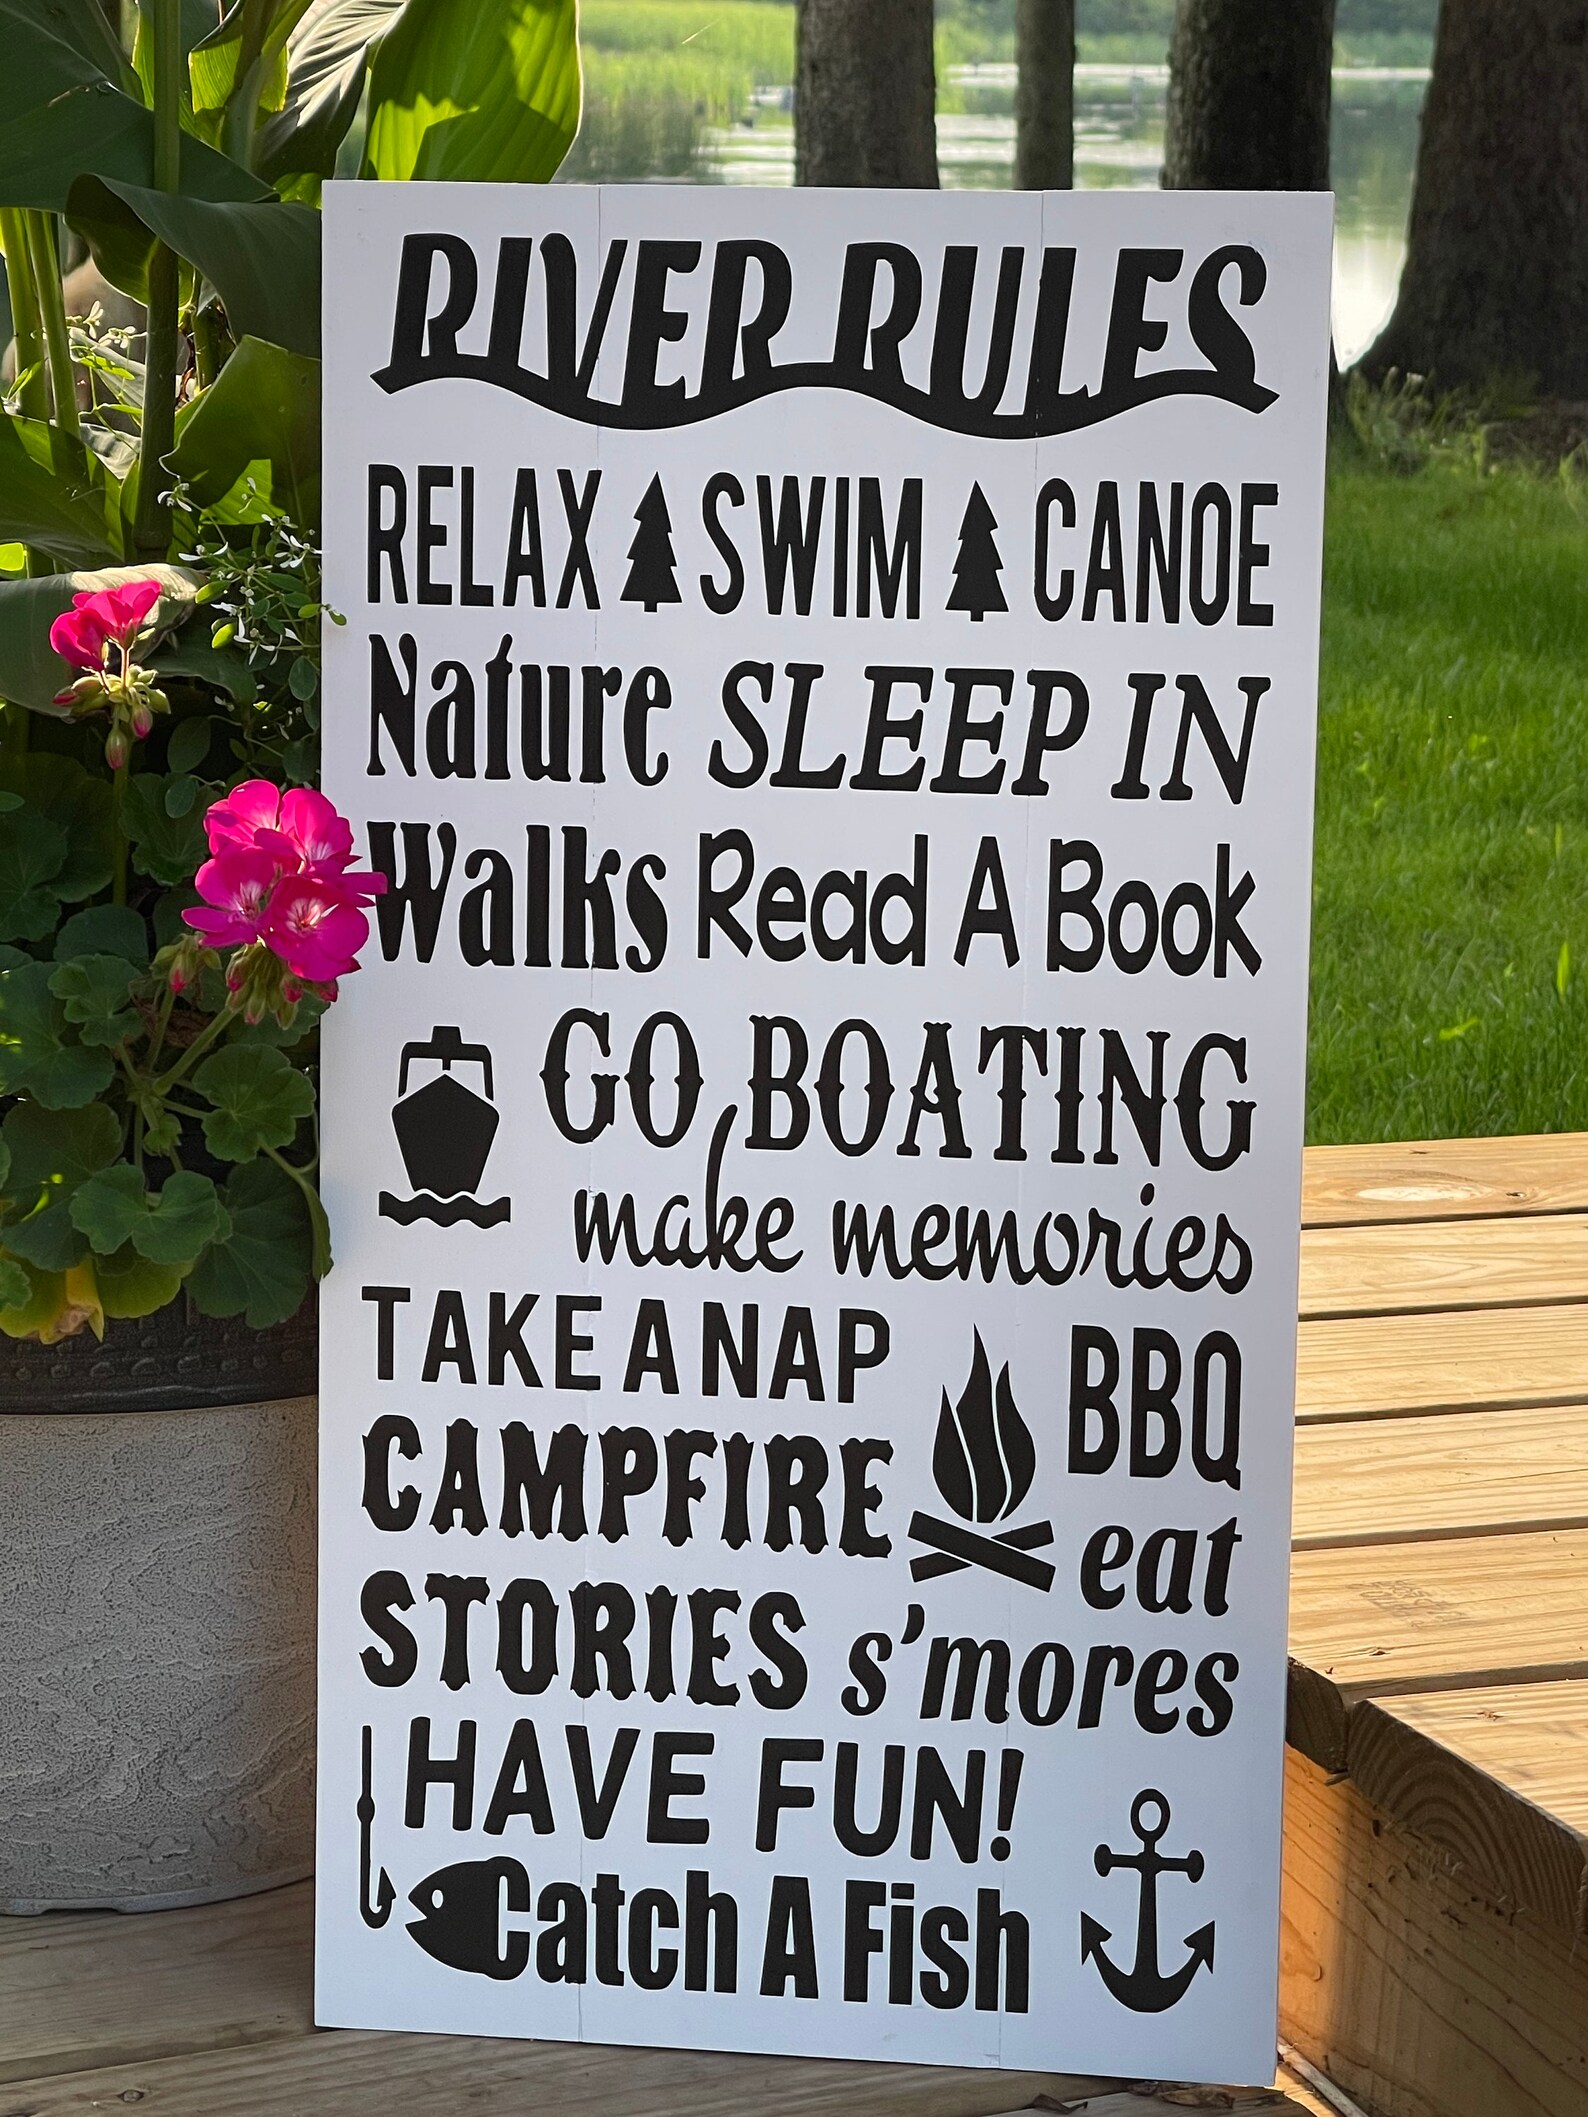 RIVER RULES
RELAX SWIM CANOE
Nature SLEEP IN
Walks Read A Book
GO BOATING
make memories
TAKE A NAP
BBQ
CAMPFIRE
eat
STORIES s'mores
HAVE FUN!
Catch A Fish